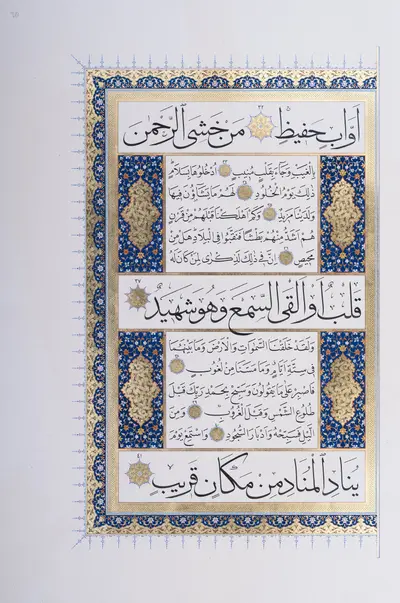 أَوَّابٍ حَفِيظٍ ٣٢ مَنْ خَشِيَ الرَّحْمٰنَ
بِالْغَيْبِ وَجَاءَ بِقَلْبٍ مُنِيبٍ ٣٣ اُدْخُلُوهَا بِسَلَامٍ
ذٰلِكَ يَوْمُ الْخُلُودِ لَهُمْ مَا يَشَاؤُنَ فِيهَا
وَلَدَيْنَا مَزِيدٌ وَكَمْ اَهْلَكْنَا قَبْلَهُمْ مِنْ قَرْنٍ
هُمْ اَشَدُّ مِنْهُمْ بَطْشًا فَنَقَّبُوا فِي الْبِلَادِ هَلْ مِنْ
مَحِيصٍ اِنَّ فِي ذٰلِكَ لَذِكْرٰى لِمَنْ كَانَ لَهُ
قَلْبٌ اَوْ اَلْقَى السَّمْعَ وَهُوَ شَهِيدٌ ٣٧
وَلَقَدْ خَلَقْنَا السَّمٰوَاتِ وَالْاَرْضَ وَمَا بَيْنَهُمَا
فِي سِتَّةِ اَيَّامٍ وَمَا مَسَّنَا مِنْ لُغُوبٍ
فَاصْبِرْ عَلٰى مَا يَقُولُونَ وَسَبِّحْ بِحَمْدِ رَبِّكَ قَبْلَ
طُلُوعِ الشَّمْسِ وَقَبْلَ الْغُرُوبِ وَمِنَ
الَّيْلِ فَسَبِّحْهُ وَاَدْبَارَ السُّجُودِ وَاسْتَمِعْ يَوْمَ
يُنَادِ الْمُنَادِ مِنْ مَكَانٍ قَرِيبٍ ٤١